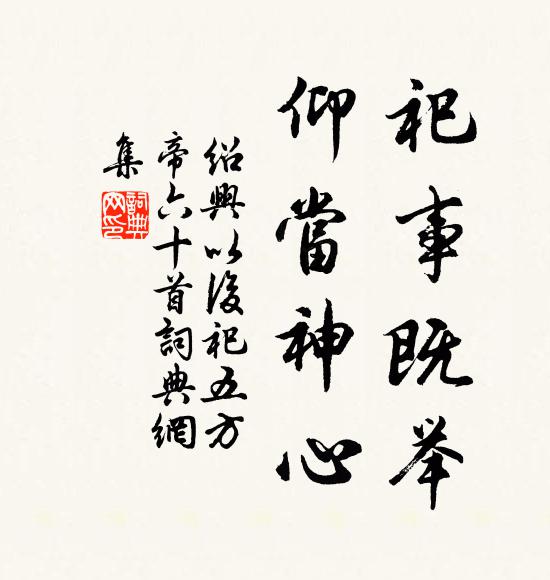 祀事既举
仰當神心
紹興以後祀五方
帝六十首詞典網
集
詞典
网印